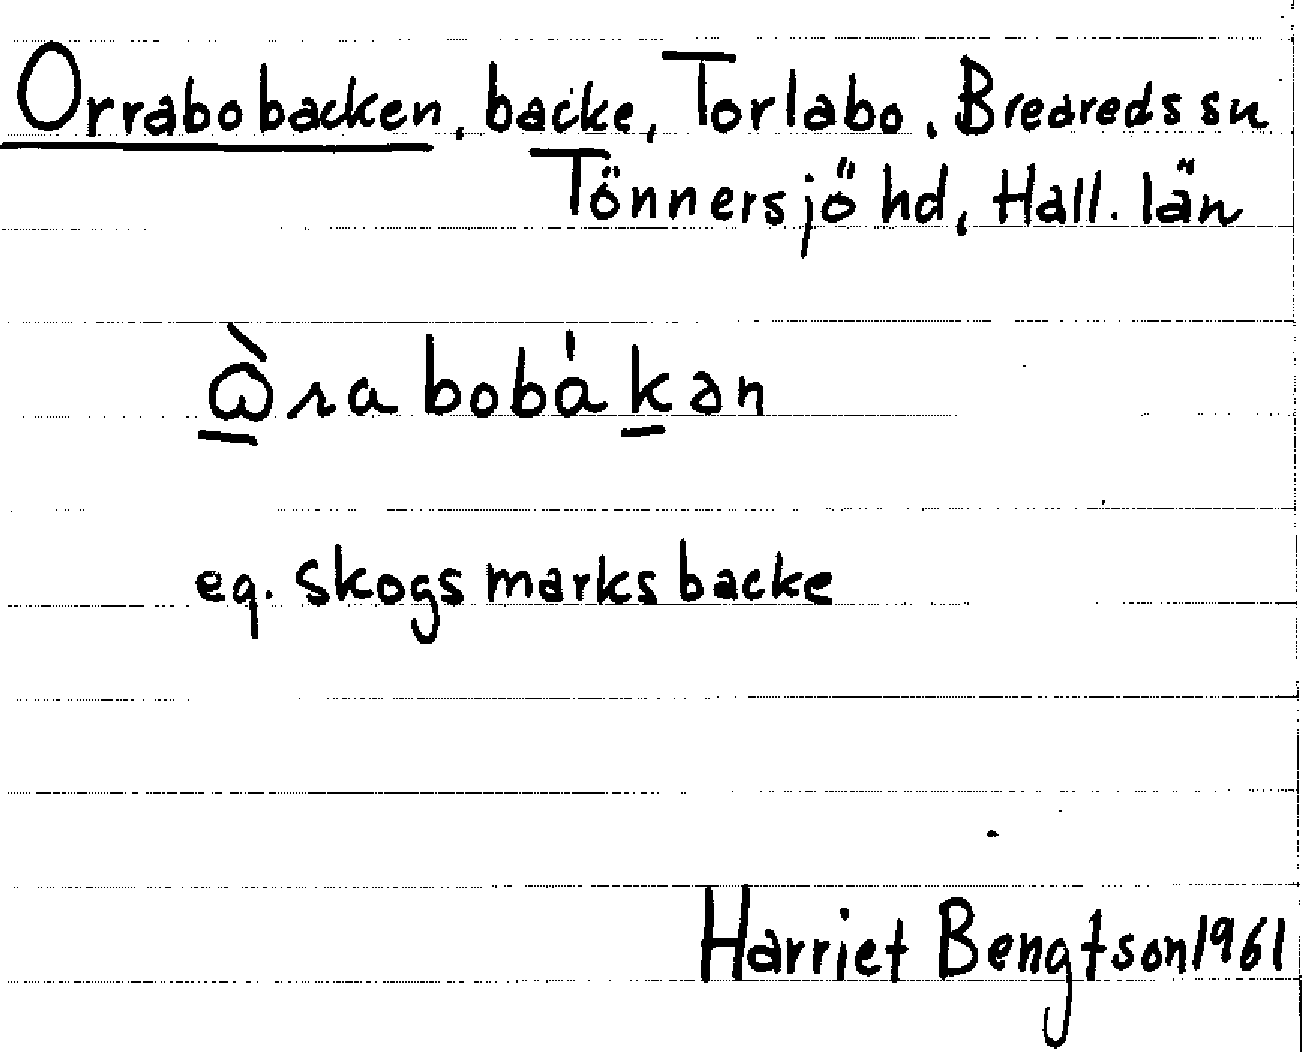 Orrabobacken, backe, Torlabo, Breareds sn
Tönnersjö hd, Hall. län
ὼrabobákən
eg. skogsmarksbacke
Harriet Bengtson 1961